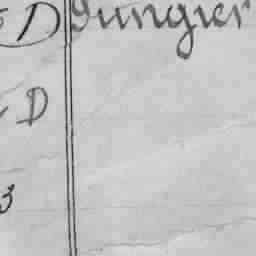 D Jungier
D
3